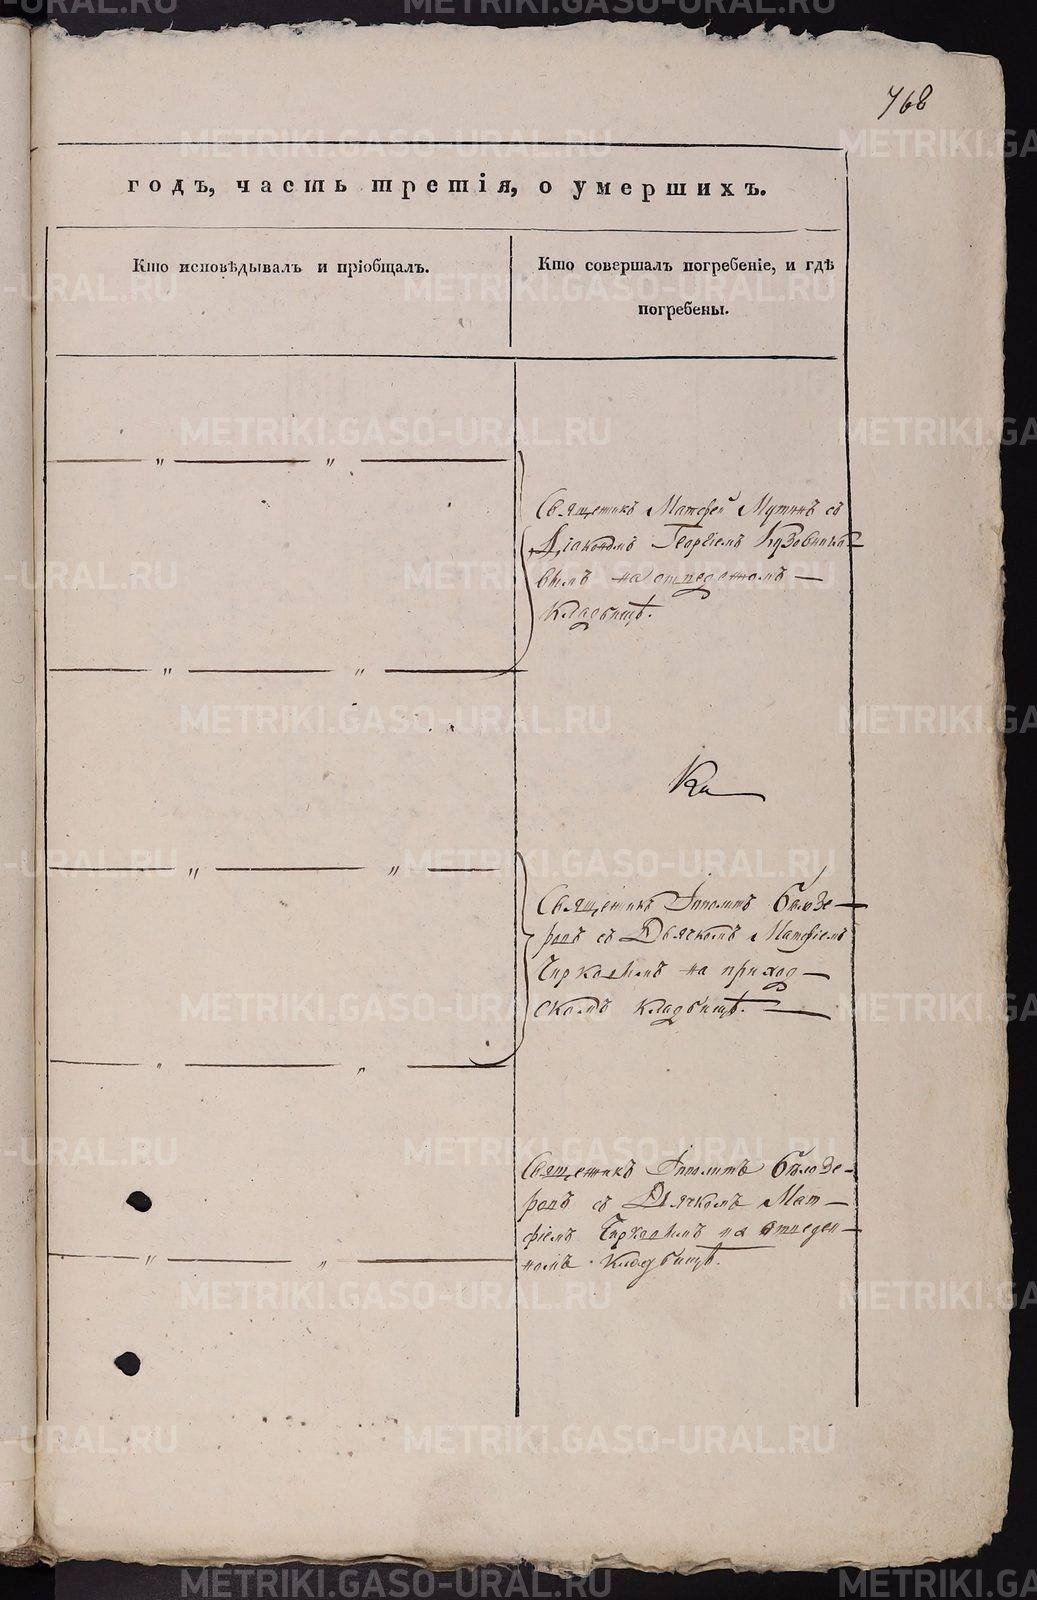 768
годъ, часть третія, о умершихъ.
Кто исповѣдывалъ и пріобщалъ.
Кто совершалъ погребеніе, и гдѣ
погребены.
Священикъ Матфей Мутинъ съ
Діакономъ Георгіемъ Кузовнико-
вымъ на отведеномъ
кладбищѣ.
Ка
Священикъ Іполитъ Бѣлозе-
ровъ съ Дьячкомъ Матфіемъ
Чирковымъ на приход-
скомъ кладбищѣ.
Священикъ Іполитъ Бѣлозе-
ровъ съ Дьячкомъ Мат-
фіемъ Чирковымъ на отведен-
номъ кладбищѣ.
METRIKI.GASO-URAL.RU